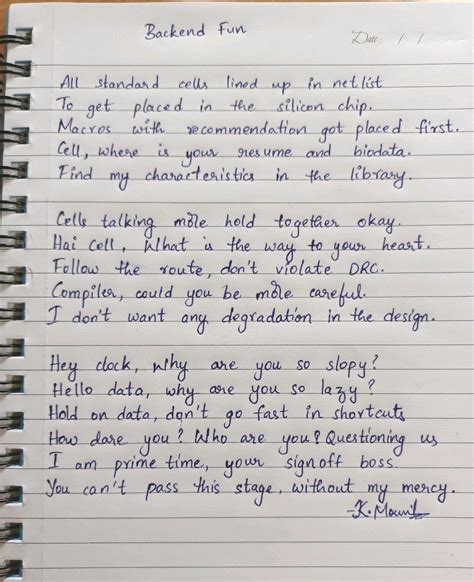 Backend Fun
Date: / /
All standard cells lined up in netlist
To get placed in the silicon chip.
Macros with recommendation got placed first.
Cell, where is your resume and biodata.
Find my characteristics in the library.
Cells talking more hold together okay.
Hai Cell, What is the way to your heart.
Follow the route, don't violate DRC.
Compiler, could you be more careful.
I don't want any degradation in the design.
Hey clock, Why are you so slopy?
Hello data, why are you so lazy?
Hold on data, don't go fast in shortcuts
How dare you? Who are you? Questioning us
I am prime time, your signoff boss.
You can't pass this stage, without my mercy.
-K.